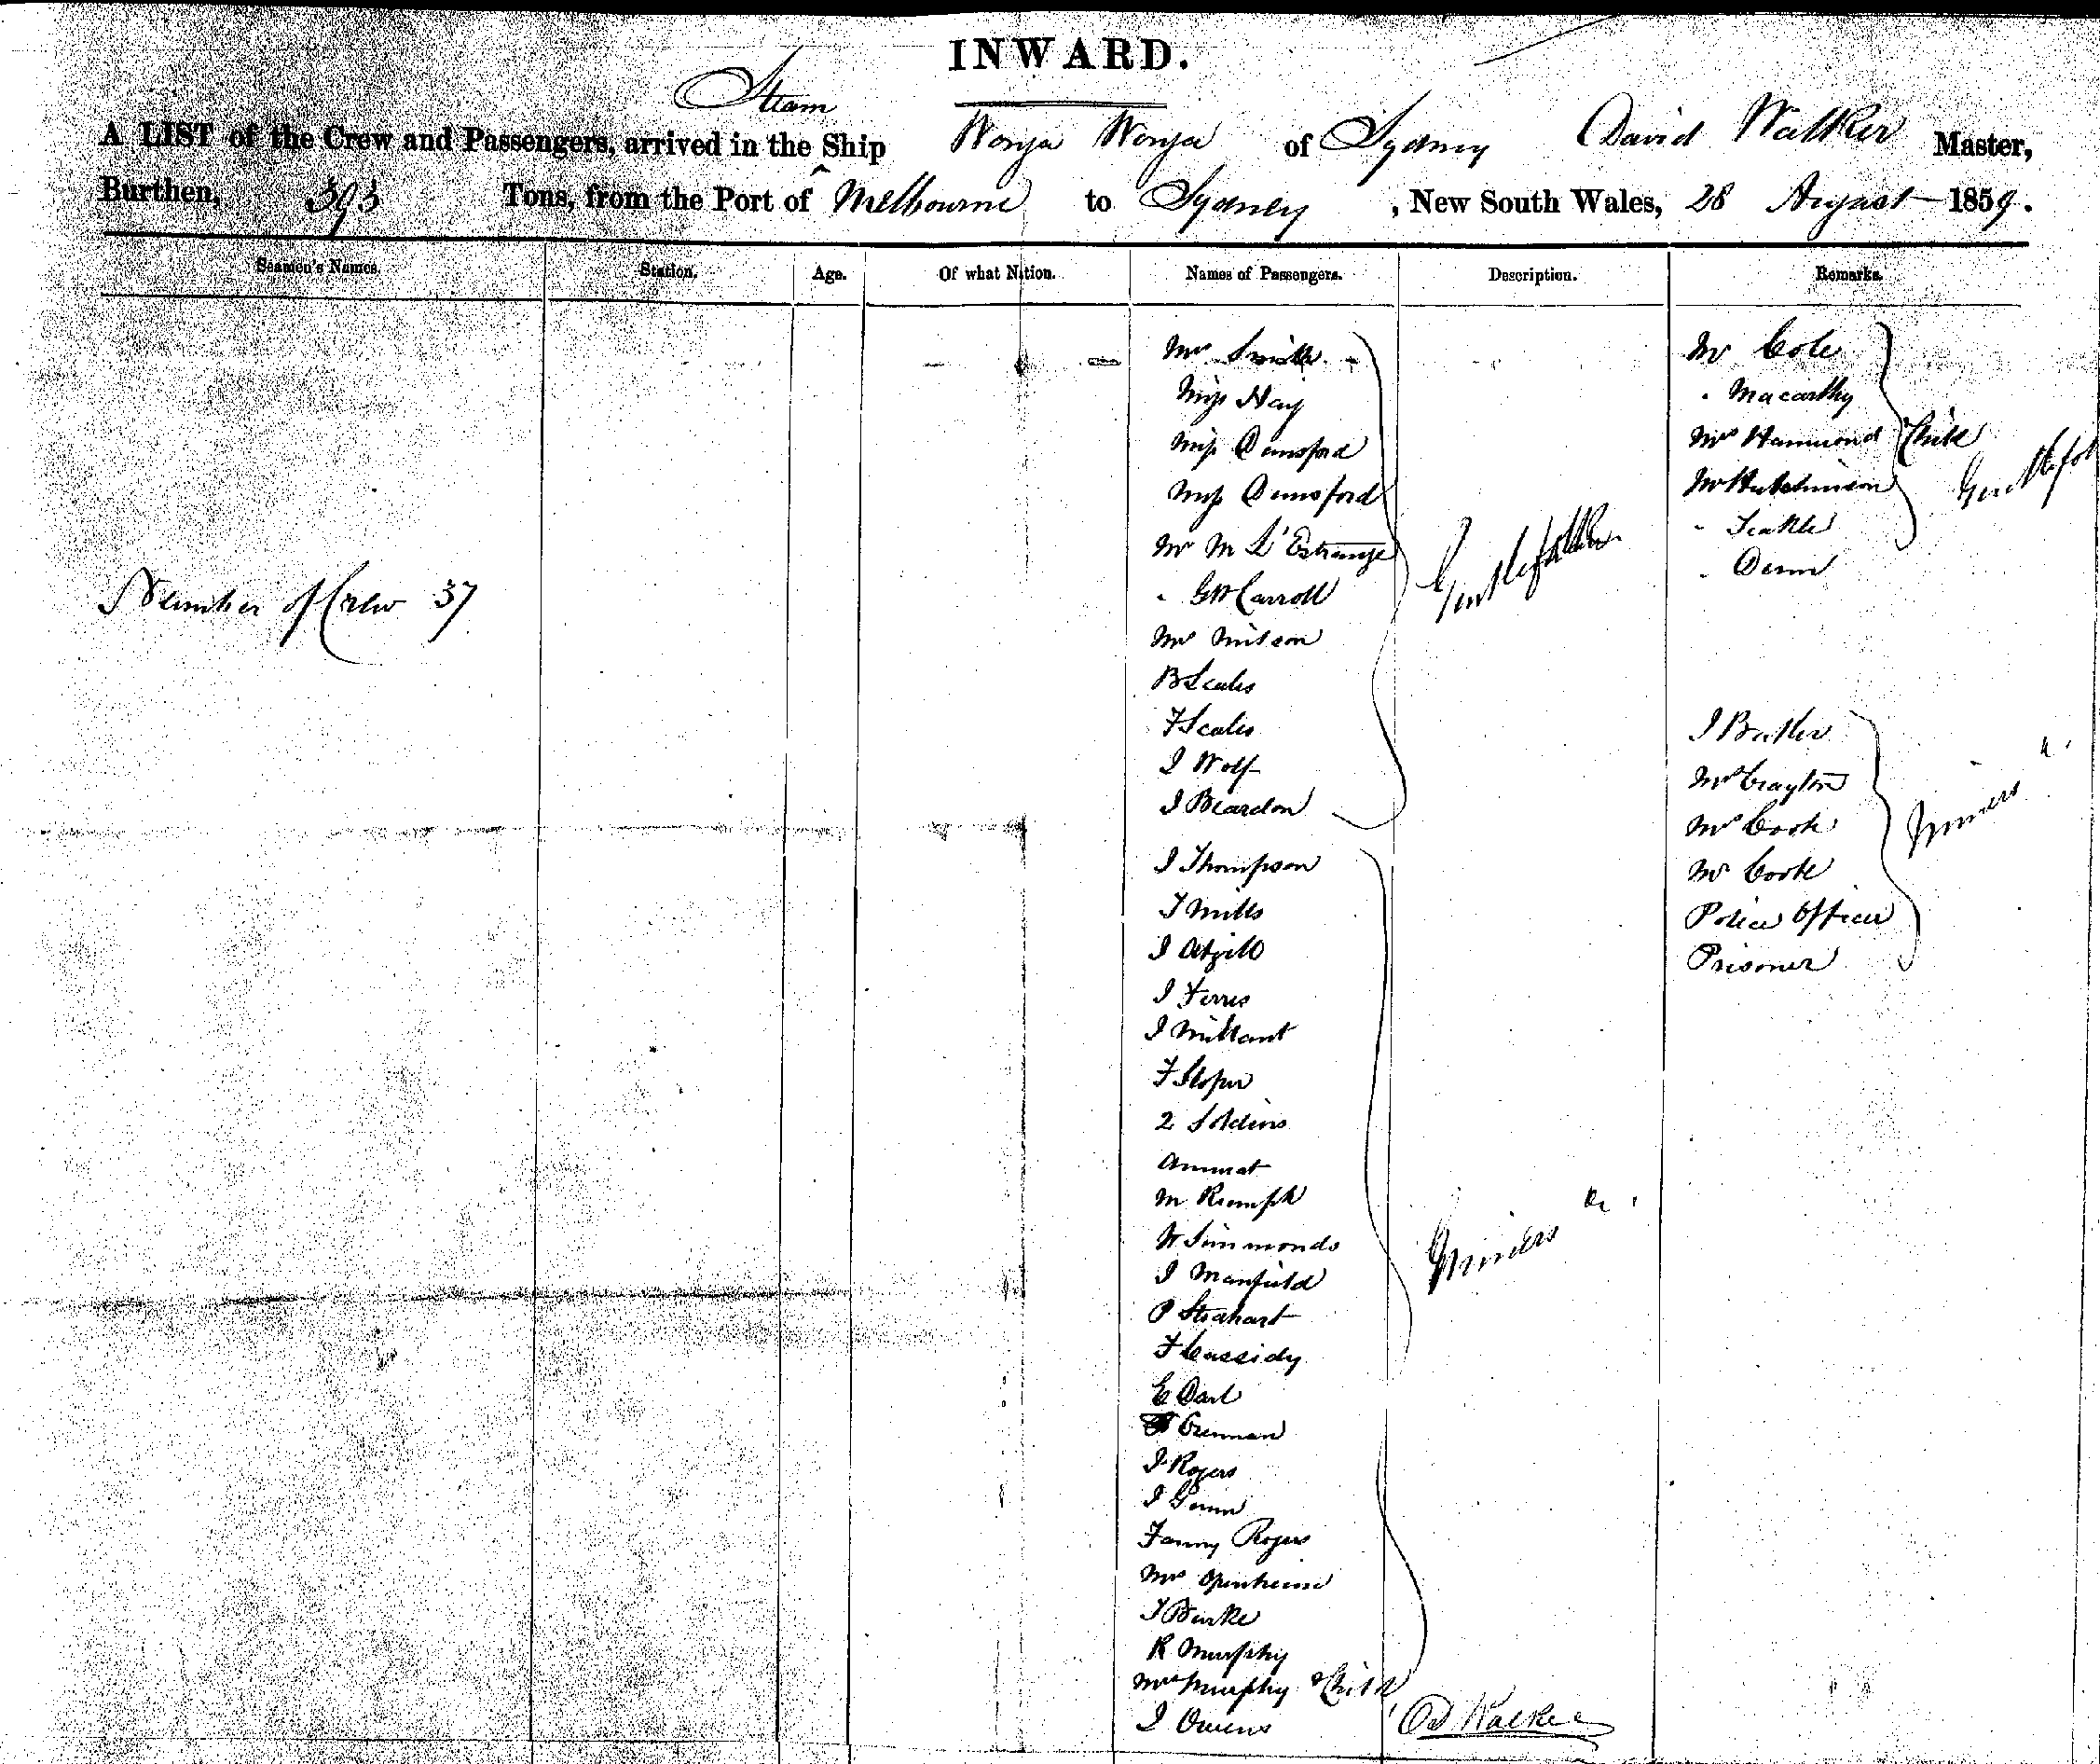 INWARD.
Steam
A LIST of the Crew and Passengers, arrived in the Ship Wonga Wonga of Sydney David Walker Master,
Burthen, 393 Tons, from the Port of ^ Melbourne to Sydney, New South Wales, 28 August 1859.
Seamen's Names. Station. Age. Of what Nation. Names of Passengers. Description. Remarks.
Number of Crew 37
Mrs Smith
Miss Hay
Miss Dunsford
Miss Dunsford
Mr M L'Estrange
" GW Carroll
Mr Milson
B Scales
F Scales
J Wolf
J Beardon
J Thompson
T Mills
J
J Ferris
J
F Sloper
2 Soldiers
M Rumph
W Simmonds
J Manfield
P
F Cassidy
E Dart
J Rogers
J
Fanny Rogers
Mrs
J Burke
R Murphy
Mrs Murphy & Child
J Owens
Gentlefolks
Miners &c.
D Walker
Mr Cole
" Macarthy
Mrs Hammond Child
Mr Hutchinson
"
"
J Butler
Mr Crayton
Mr Cook
Mr Cook
Police Officer
Prisoner
Miners &c.